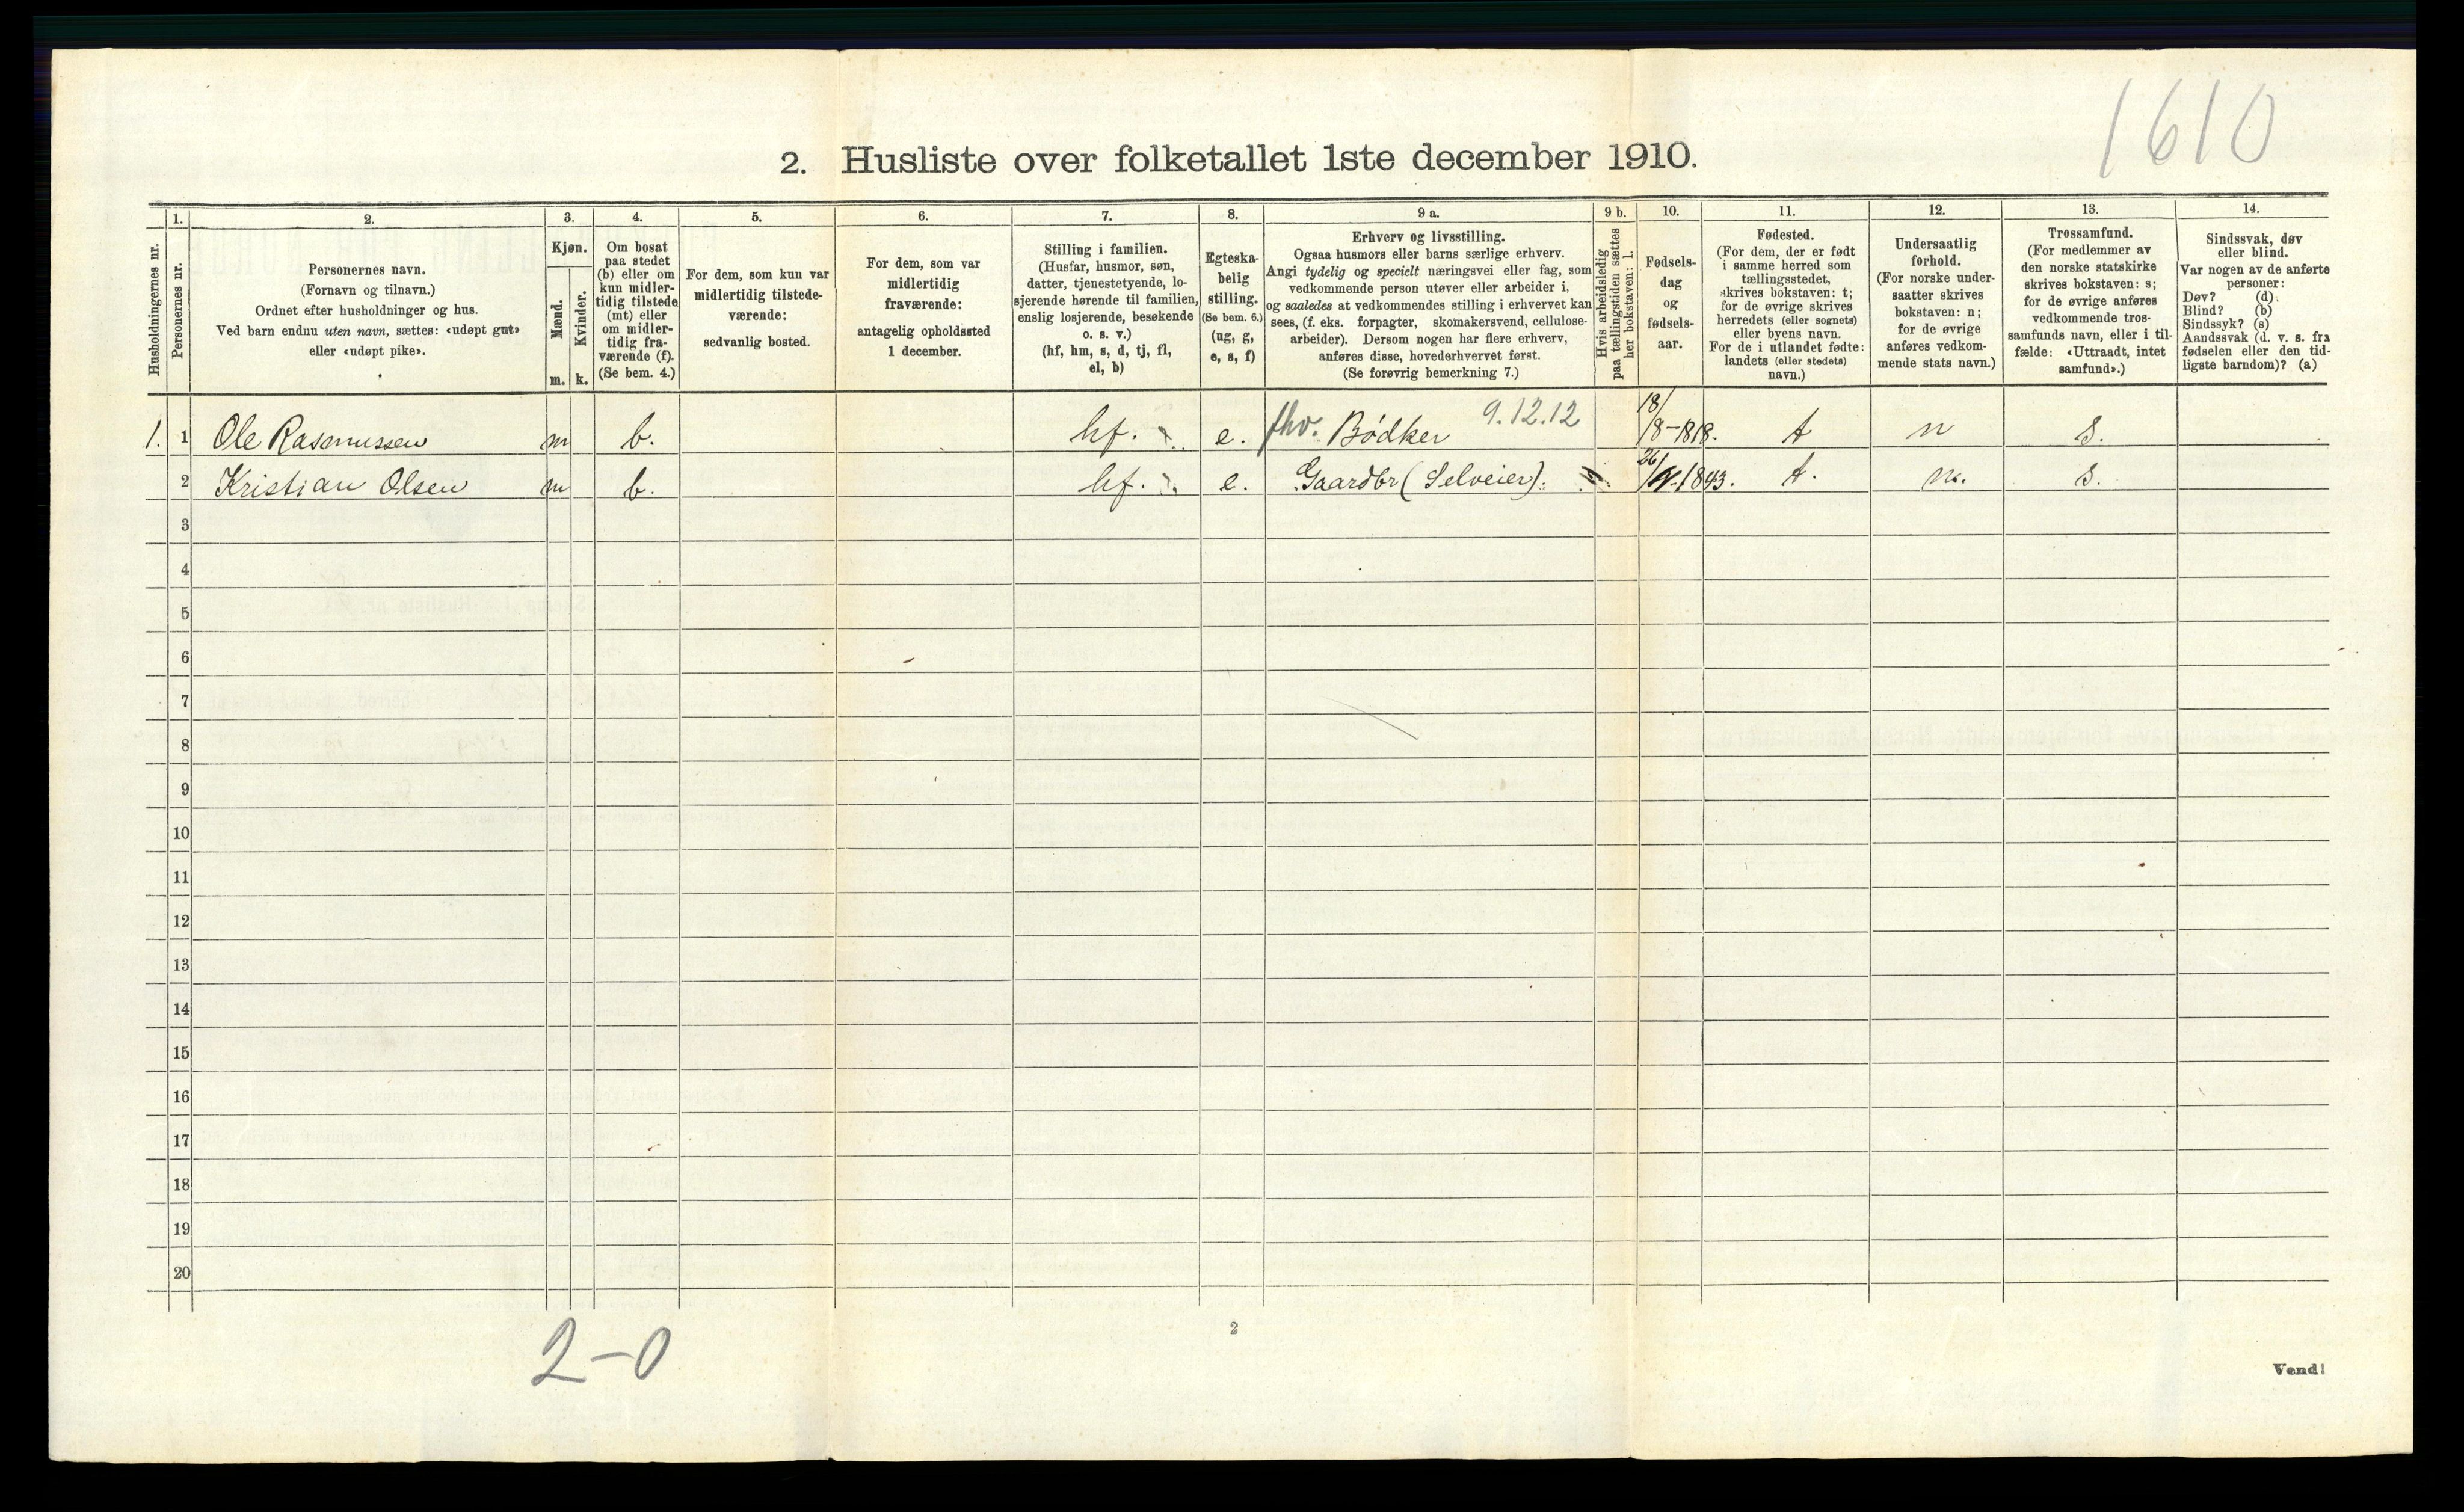 1610
2. Husliste over folketallet 1ste december 1910.
Husholdningernes nr.
1.
Personernes nr.
2.
Personernes navn.
(Fornavn og tilnavn.)
Ordnet efter husholdninger og hus.
Ved barn endnu uten navn, sættes: «udøpt gut»
eller «udøpt pike».
3.
Kjøn.
Mænd.
Kvinder.
m. k.
4.
Om bosat
paa stedet
(b) eller om
kun midler-
tidig tilstede
(mt) eller
om midler-
tidig fra-
værende (f).
(Se bem. 4.)
5.
For dem, som kun var
midlertidig tilstede-
værende:
sedvanlig bosted.
6.
For dem, som var
midlertidig
fraværende:
antagelig opholdssted
1 december.
7.
Stilling i familien.
(Husfar, husmor, søn,
datter, tjenestetyende, lo-
sjerende hørende til familien,
enslig losjerende, besøkende
o. s. v.)
(hf, hm, s, d, tj, fl,
el, b)
8.
Egteska-
belig
stilling.
(Se bem. 6.)
(ug, g,
e, s, f)
9 a.
Erhverv og livsstilling.
Ogsaa husmors eller barns særlige erhverv.
Angi tydelig og specielt næringsvei eller fag, som
vedkommende person utøver eller arbeider i,
og saaledes at vedkommendes stilling i erhvervet kan
sees, (f. eks. forpagter, skomakersvend, cellulose-
arbeider). Dersom nogen har flere erhverv,
anføres disse, hovederhvervet først.
(Se forøvrig bemerkning 7.)
9 b.
Hvis arbeidsledig
paa tællingstiden sættes
her bokstaven: l.
10.
Fødsels-
dag
og
fødsels-
aar.
11.
Fødested.
(For dem, der er født
i samme herred som
tællingsstedet,
skrives bokstaven: t;
for de øvrige skrives
herredets (eller sognets)
eller byens navn.
For de i utlandet fødte:
landets (eller stedets)
navn.)
12.
Undersaatlig
forhold.
(For norske under-
saatter skrives
bokstaven: n;
for de øvrige
anføres vedkom-
mende stats navn.)
13.
Trossamfund.
(For medlemmer av
den norske statskirke
skrives bokstaven: s;
for de øvrige anføres
vedkommende tros-
samfunds navn, eller i til-
fælde: «Uttraadt, intet
samfund».)
14.
Sindssvak, døv
eller blind.
Var nogen av de anførte
personer:
Døv? (d)
Blind? (b)
Sindssyk? (s)
Aandssvak (d. v. s. fra
fødselen eller den tid-
ligste barndom)? (a)
1. 1 Ole Rasmussen m b. hf. e. fhv. Bødker 9.12.12 18/8-1818. t n s.
2 Kristian Olsen m b. hf. e. Gaardbr (Selveier). t. n. s.
3
4
5
6
7
8
9
10
11
12
13
14
15
16
17
18
19
20
2-0
2
Vend!